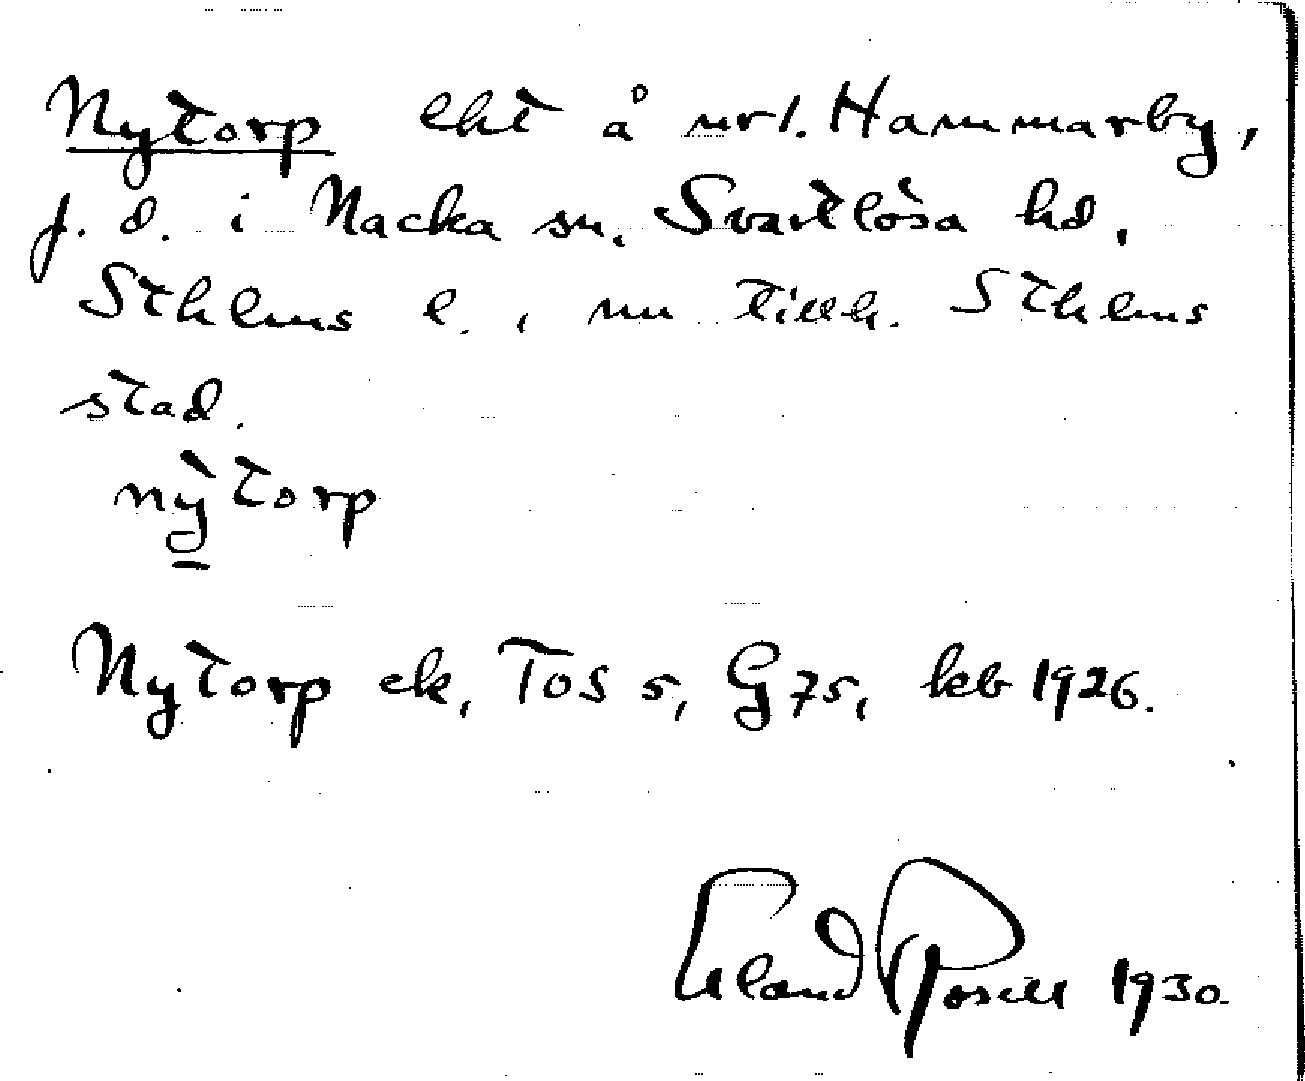 Nytorp lht å url. Hammarby,
f. d. i Nacka sn, Svartlösa hd,
Sthlms l., nu tillh. Sthlms
stad.
nỳtorp
Nytorp ek, TOS 5, G 75, keb 1926.
Erland Rosell 1930.